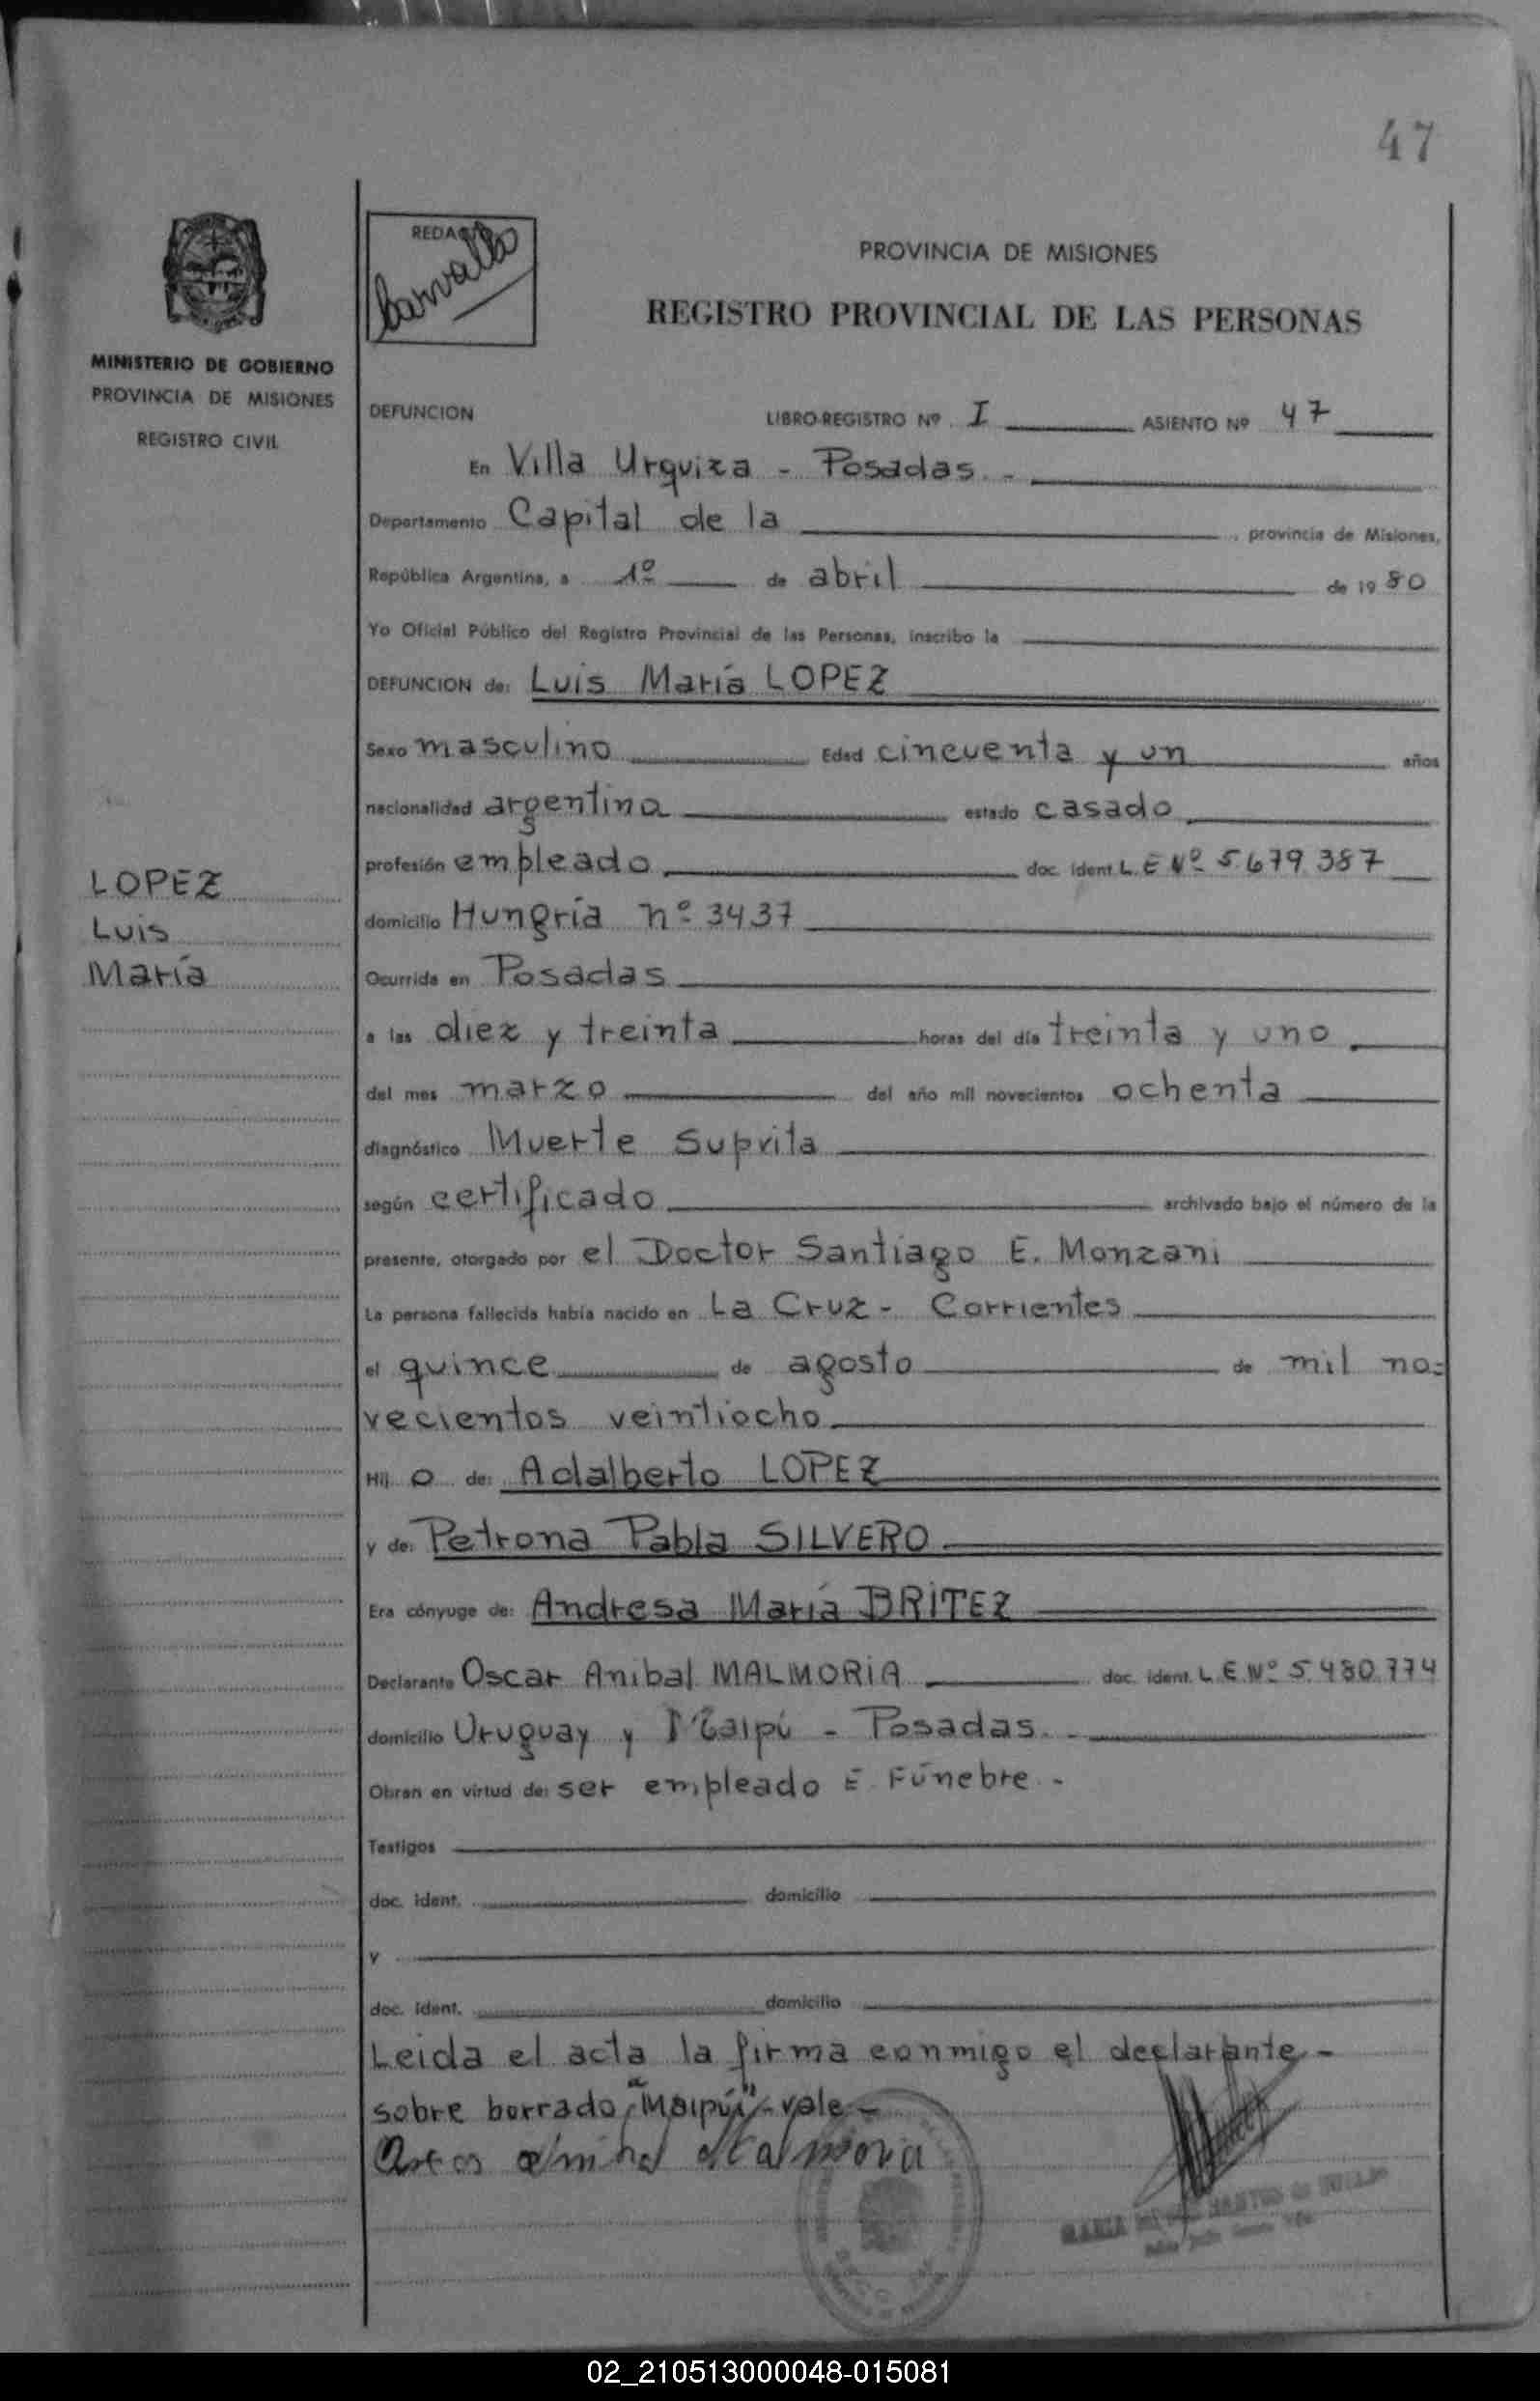 47
MINISTERIO DE GOBIERNO
PROVINCIA DE MISIONES
REGISTRO CIVIL
LOPEZ
Luis
María
Carvallo
PROVINCIA DE MISIONES
REGISTRO PROVINCIAL DE LAS PERSONAS
DEFUNCION LIBRO-REGISTRO Nº I ASIENTO Nº 47
En Villa Urquiza - Posadas. -
Departamento Capital de la , provincia de Misiones,
República Argentina, a 1º de abril de 1980
Yo Oficial Público del Registro Provincial de las Personas, inscribo la
DEFUNCION de: Luis María LOPEZ
Sexo masculino Edad cincuenta y un años
nacionalidad argentina estado casado
profesión empleado doc. ident. L E Nº 5.679.387
domicilio Hungría nº 3437
Ocurrida en Posadas
a las diez y treinta horas del día treinta y uno
del mes marzo del año mil novecientos ochenta
diagnóstico Muerte Suprita
según certificado archivado bajo el número de la
presente, otorgado por el Doctor Santiago E. Monzani
La persona fallecida había nacido en La Cruz - Corrientes
el quince de agosto de mil no=
vecientos veintiocho
Hij o de: Adalberto LOPEZ
y de: Petrona Pabla SILVERO
Era cónyuge de: Andresa María BRITEZ
Declarante Oscar Anibal MALMORIA doc. ident. L.E.Nº 5.480.774
domicilio Uruguay y Maipú - Posadas. -
Obran en virtud de: ser empleado E. Fúnebre. -
Testigos
doc. ident. domicilio
y
doc. ident. domicilio
Leida el acta la firma conmigo el declarante -
sobre borrado "Maipú" - vale -
02_210513000048-015081